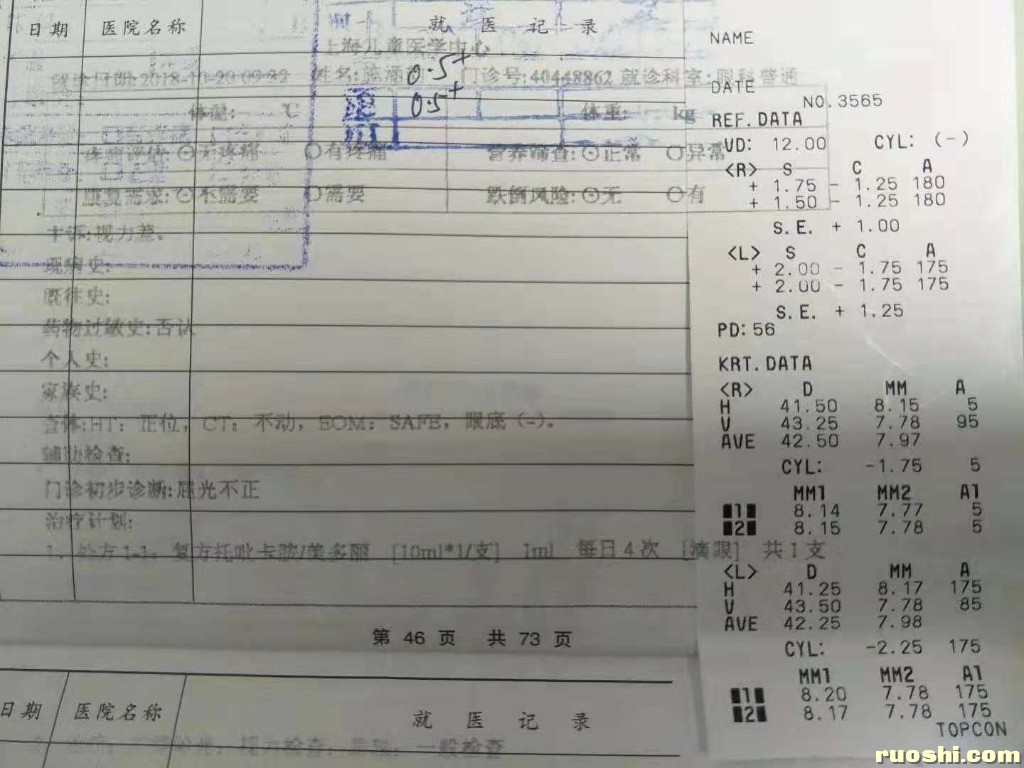 日期 医院名称 就医记录
上海儿童医学中心
就诊日期:2018-10-29 09:32 姓名: 门诊号:40448862 就诊科室:眼科普通
0.5+
0.5+
体温: ℃ 体重: kg
疼痛评估:⊙无疼痛 ○有疼痛 营养筛查:⊙正常 ○异常
康复需求:⊙不需要 ○需要 跌倒风险:⊙无 ○有
主诉:视力差。
现病史:
既往史:
药物过敏史:否认
个人史:
家族史:
查体:HT:正位,CT:不动,EOM:SAFE,眼底(-)。
辅助检查:
门诊初步诊断:屈光不正
治疗计划:
1、处方1-1:复方托吡卡胺/美多丽 [10ml*1/支] 1ml 每日4次 [滴眼] 共1支
第 46 页 共 73 页
日期 医院名称 就医记录
视力检查, 一般检查
NAME
DATE
NO.3565
REF.DATA
VD: 12.00 CYL: (-)
<R> S C A
+ 1.75 - 1.25 180
+ 1.50 - 1.25 180
S.E. + 1.00
<L> S C A
+ 2.00 - 1.75 175
+ 2.00 - 1.75 175
S.E. + 1.25
PD: 56
KRT.DATA
<R> D MM A
H 41.50 8.15 5
V 43.25 7.78 95
AVE 42.50 7.97
CYL: -1.75 5
MM1 MM2 A1
1 8.14 7.77 5
2 8.15 7.78 5
<L> D MM A
H 41.25 8.17 175
V 43.50 7.78 85
AVE 42.25 7.98
CYL: -2.25 175
MM1 MM2 A1
1 8.20 7.78 175
2 8.17 7.78 175
TOPCON
ruoshi.com